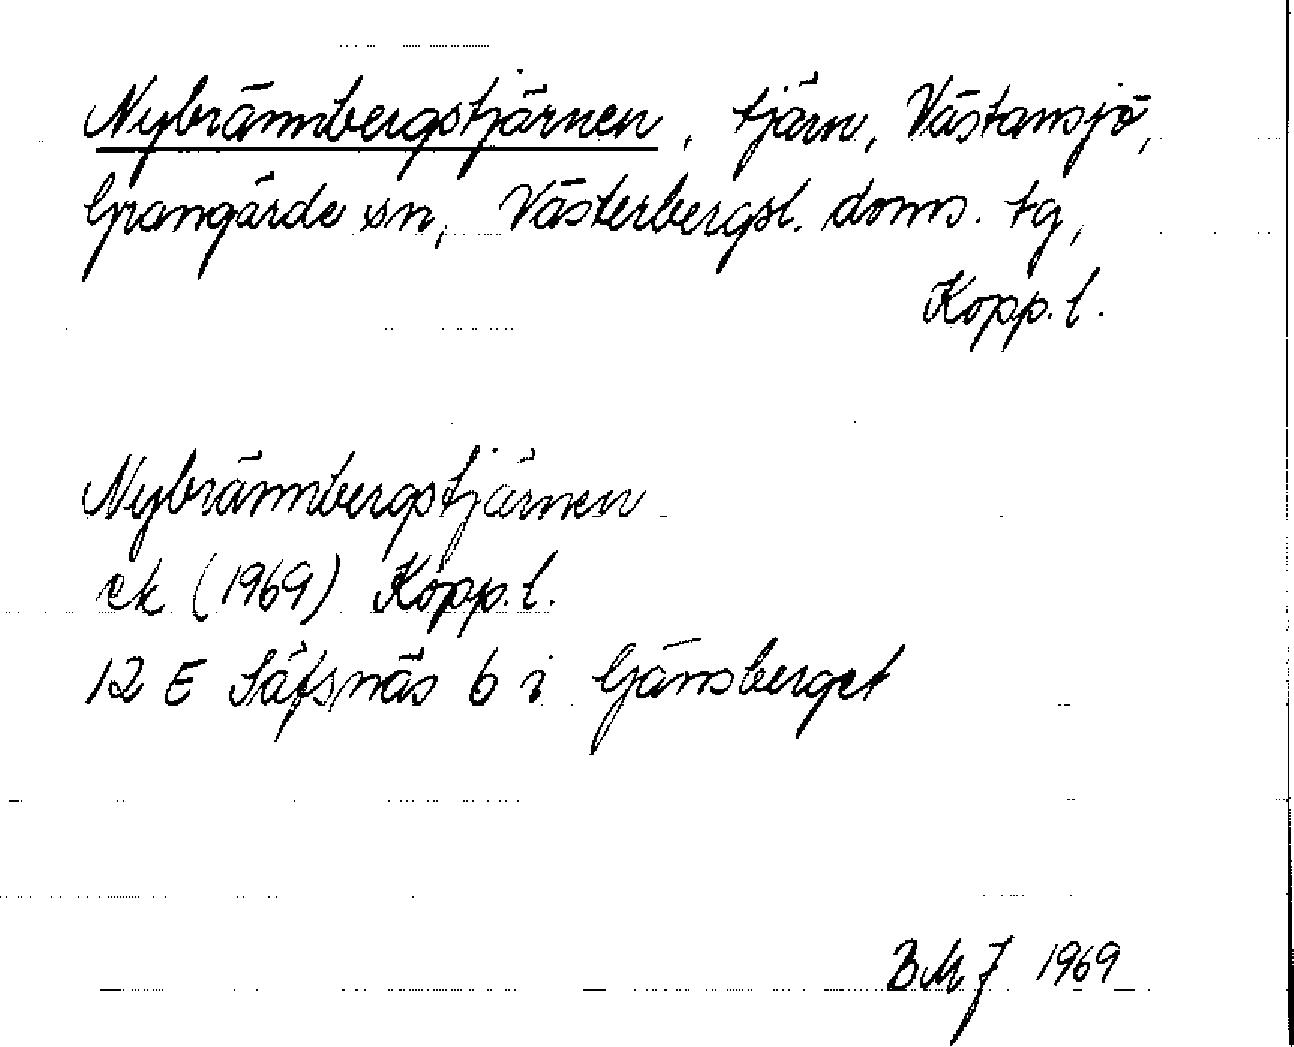 Nybrännbergstjärnen, tjärn, Västansjö,
Grangärde sn, Västerbergsl. doms. tg,
Kopp. l.
Nybrännbergstjärnen
ek (1969) Kopp. l.
12 E Säfsnäs 6 i Gänsberget
BMJ 1969